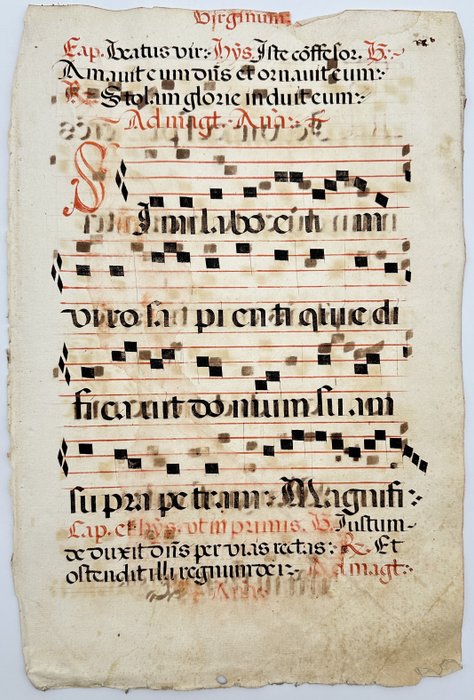 Virginum.
Cap. Beatus vir: hÿs. Iste cõfesor. ℣.
Amauit eum dñs et ornauit eum:
℟. Stolam glorie induit eum:
Ad magt. Aña.
Simi labo enti
viro sa pi enti qui e di
fi ca uit domum su am
su pra pe tram: Magnifi:
Cap. et hÿs. vt in primis. ℣. Iustum-
de duxit dñs per vias rectas: ℟. Et
ostendit illi regnum dei: Ad magt: